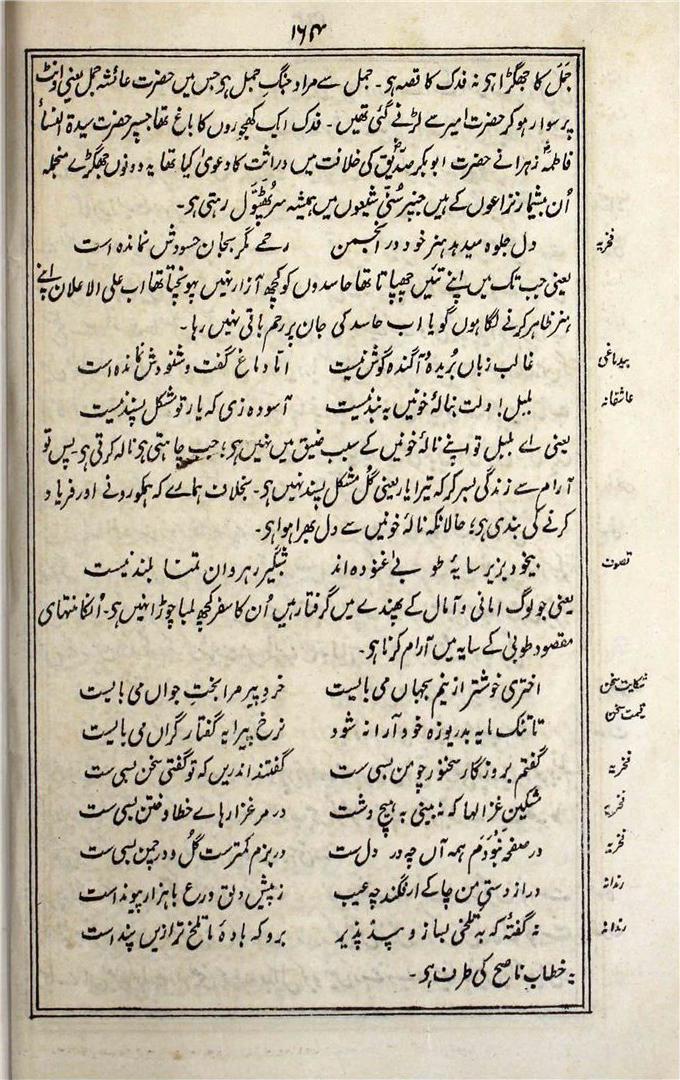 ۱۶۴
جَمَل کا جھگڑا ہو نہ فدک کا قصہ ہو۔ جمل سے مراد جنگِ جمل ہو جس میں حضرت عائشہ جمل یعنی اونٹ
پر سوار ہو کر حضرت امیر سے لڑنے گئی تھیں۔ فدک ایک کھجوروں کا باغ تھا جسپر حضرت سیدۃ النساء
فاطمہؓ زہرا نے حضرت ابوبکر صدیقؓ کی خلافت میں وراثت کا دعویٰ کیا تھا یہ دونوں جھگڑے منجملہ
اُن بیشمار نزاعوں کے ہیں جنپر سُنّی شیعوں میں ہمیشہ سر پھٹوّل رہتی ہو۔
فخریہ دل جلوہ میدہد ہنر خود در انجمن رحمے مگر بجان حسودش نماندہ است
یعنی جب تک میں اپنے تئیں چھپاتا تھا حاسدوں کو کچھ آزار نہیں پہونچتا تھا اب علی الاعلان اپنے
ہنر ظاہر کرنے لگا ہوں گویا اب حاسد کی جان پر رحم باقی نہیں رہا۔
بیدماغی غالب زباں بُریدہ و آگندہ گوش نیست اتا دماغ گفت و شنودش نماندہ است
عاشقانہ بلبل! دلت بنالۂ خونیں بہ بند نیست آسودہ زی کہ یار تو مشکل پسند نیست
یعنی اے بلبل تو اپنے نالۂ خونیں کے سبب ضیق میں نہیں ہو؛ جب چاہتی ہو نالہ کرتی ہو۔ پس تو
آرام سے زندگی بسر کر کہ تیرا یار یعنی گل مشکل پسند نہیں ہو۔ بخلاف ہمارے کہ ہمکو رونے اور فریاد
کرنے کی بندی ہو؛ حالانکہ نالۂ خونیں سے دل بھرا ہوا ہو۔
تصوف بیخود بزیر سایۂ طوبےٰ غنودہ اند شبگیر رہروان تمنا بلند نیست
یعنی جو لوگ امانی و آمال کے پھندے میں گرفتار ہیں اُن کا سفر کچھ لمبا چوڑا نہیں ہو۔ اُنکا منتہای
مقصود طوبیٰ کے سایہ میں آرام کرنا ہو۔
شکایت سخن اختری خوشتر ازینم بجہاں می بایست خردِ پیر مرا بختِ جواں می بایست
قیمت سخن تا تنک مایہ بدریوزہ خود آرا نہ شود نرخ پیرایہ گفتار گراں می بایست
فخریہ گفتم بروزگار سخنور چو من بسی ست گفتند اندریں کہ تو گفتی سخن بسی ست
فخریہ مشکین غزالہا کہ نہ بینی بہ ہیچ دشت در مرغزارہاے خطا و ختن بسی ست
فخریہ در صفحہ نبودم ہمہ آں چہ در دل ست در بزم کمترست گل و در چمن بسی ست
رندانہ در از دستیِ من چاکے ار فگند چہ عیب ز پیش دلق ورع با ہزار پیوند است
رندانہ نہ گفتۂ کہ بہ تلخی بساز و پند پذیر برو کہ بادۂ ما تلخ تر ازیں پند است
یہ خطاب ناصح کی طرف ہو۔